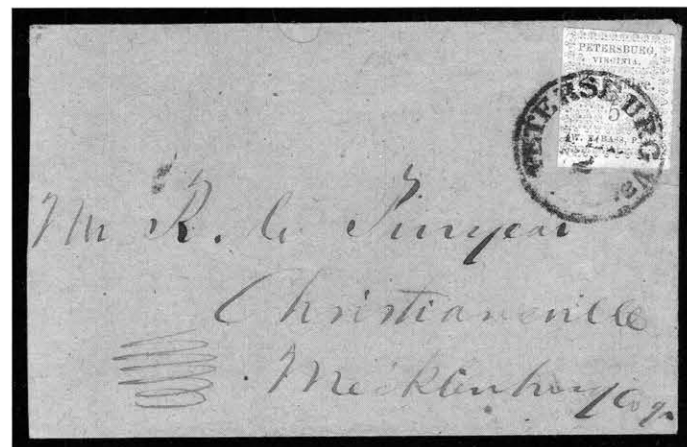 PETERSBURG,
VIRGINIA.
5
W. E. BASS, P.
PETERSBURG Va.
Mr R. C.
Christiansville
Mecklenburg Co Va